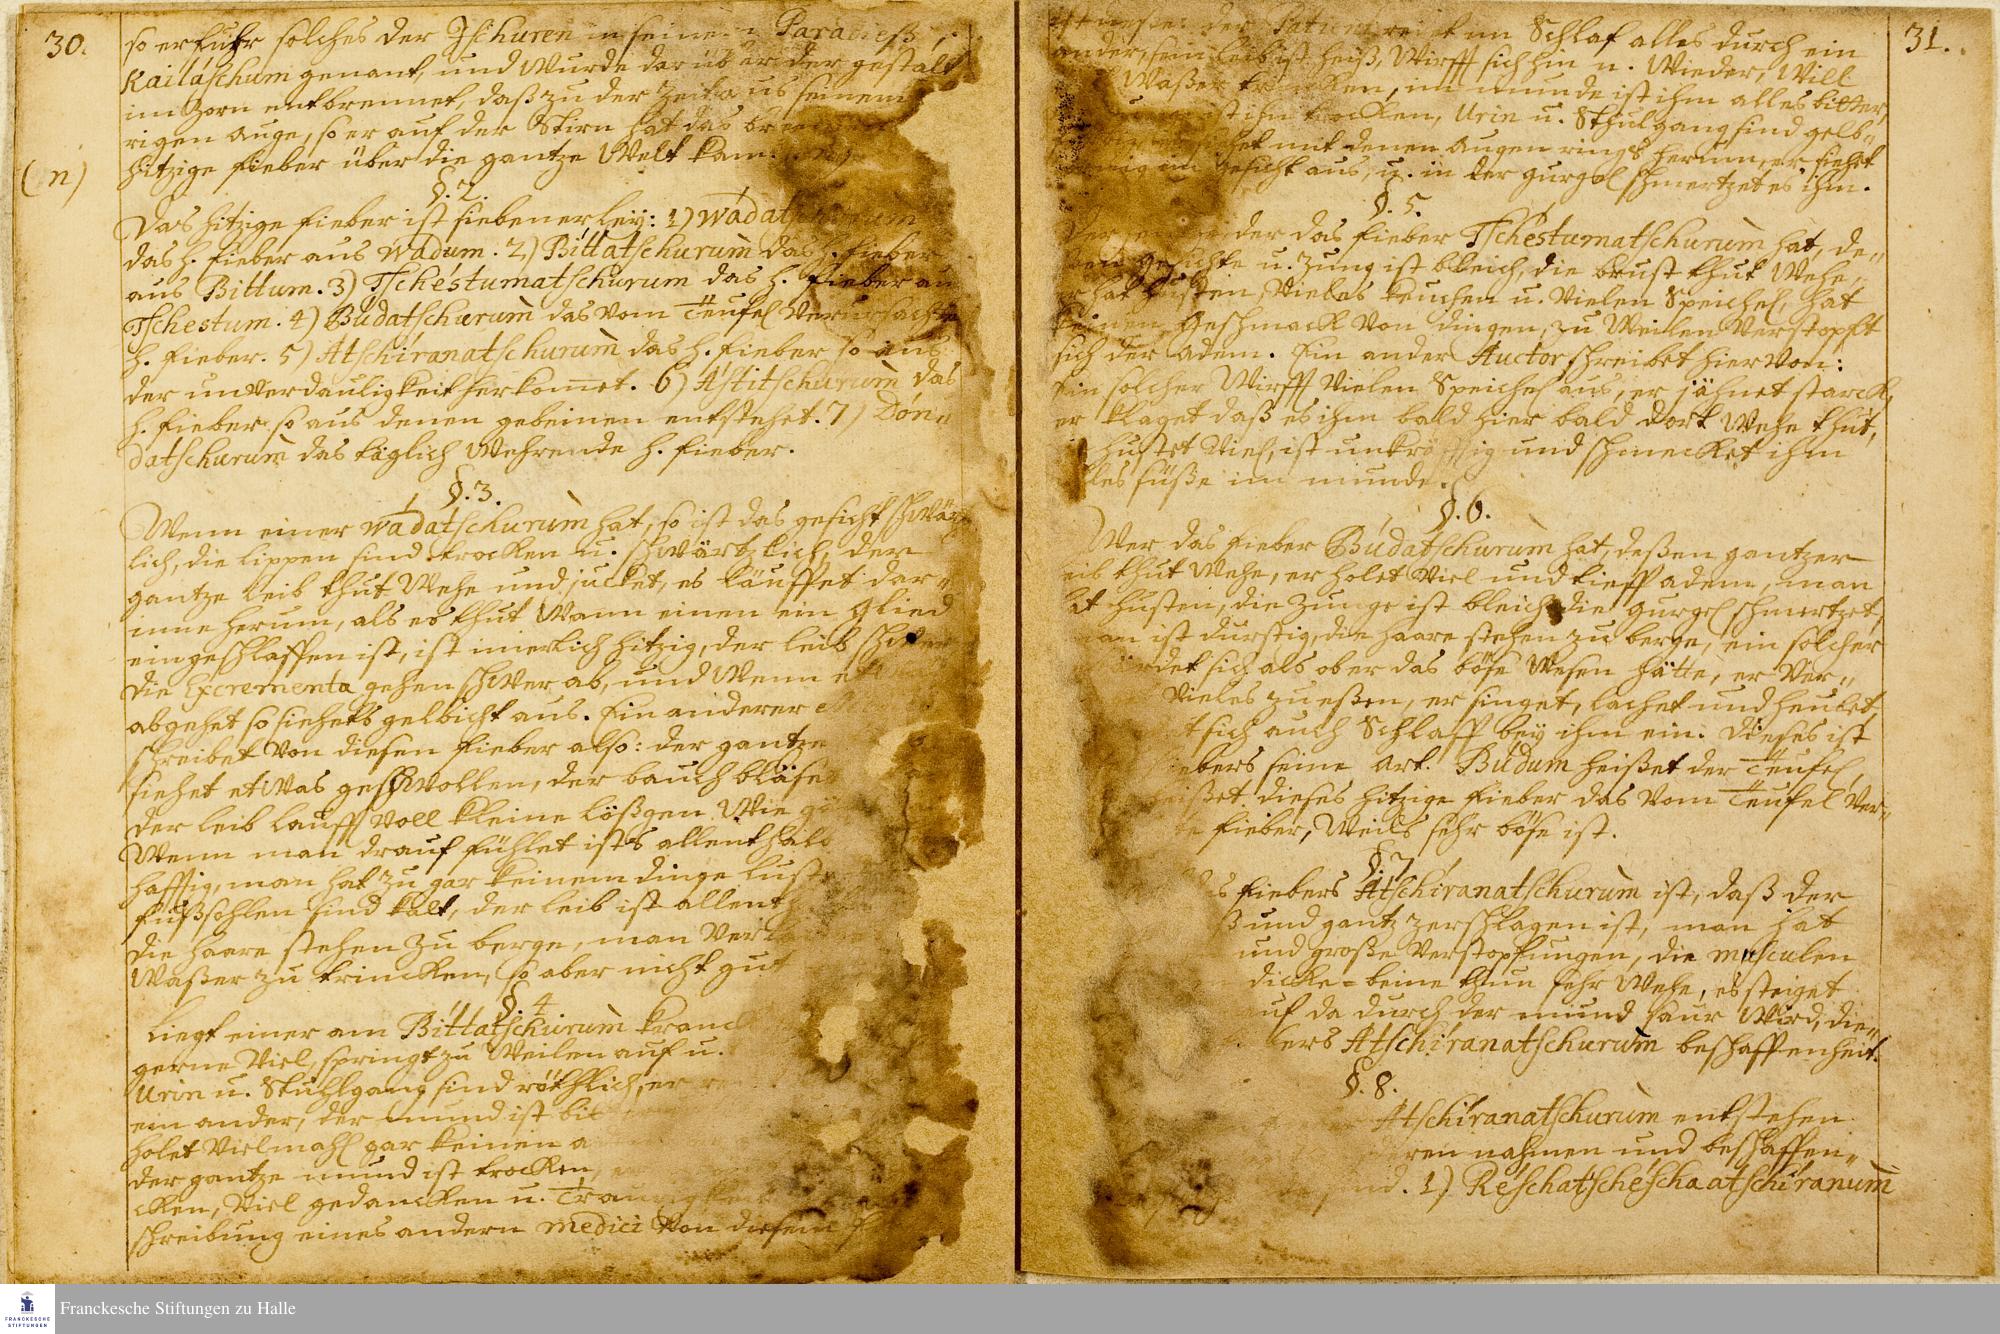 30.
so erfuhr solches der Ischuren in seinem Paradieß,
Kailaschum genant, und wurde darüber der gestalt
im Zorn entbrennet, daß zu der Zeit aus seinem
rigen Auge, so er auf der Stirn hat das
hitzige Fieber über die gantze Welt kam.
(n)
§. 2.
Das hitzige Fieber ist siebenerley: 1) Wadatschurum
das h. Fieber aus Wadum. 2) Bittatschurum das h. Fieber
aus Bittum. 3) Tschestumatschurum das h. Fieber au
Tschestum. 4) Budatschurum das vom Teufel verursachte
h. Fieber. 5) Atschiranatschurum das h. Fieber so aus
der unverdauligkeit herkommet. 6) Astitschurum das
h. Fieber so aus denen gebeinen entstehet. 7) Dön„
datschurum das täglich wehrende h. Fieber.
§. 3.
Wenn einer Wadatschurum hat, so ist das gesicht schwärtz
lich, die lippen sind trocken u. schwärtzlich, der
gantze leib thut wehe und jucket, es läuffet dar„
inne herum, als es thut wann einen ein Glied
eingeschlaffen ist, ist innerlich hitzig, der leib
die Excrementa gehen schwer ab, und wenn
abgehet so siehets gelbicht aus. Ein anderer
schreibet von diesen Fieber also: der gantze
siehet etwas geschwollen, der bauch bläset
der leib lauff voll kleine lößgen wie
wenn man drauf fühlet ists allenthalb
hafftig, man hat zu gar keinem dinge lust
fußsohlen sind kalt, der leib ist allent
die haare stehen zu berge, man
Waßer zu trincken, so aber nicht gut
§. 4
Liegt einer am Bittatschurum kranck
gerne viel, springt zu weilen auf u.
Urin u. Stuhlgang sind röthlich, er
ein ander, der mund ist bit
holet vielmahl gar keinen a
der gantze mund ist trocken,
cken, viel gedancken u. Traurigkeit
schreibung eines andern Medici von diesem
31.
der Patient redet im Schlaf alles durch ein
ander, sein leib ist heiß, wirfft sich hin u. wieder, will
Waßer trincken, im munde ist ihm alles bitter,
ist ihm trocken, Urin u. Stuhlgang sind gelb„
mit denen Augen rings herum, er siehet
im gesicht aus, u. in der gurgel schmertzet es ihm.
§. 5.
der das Fieber Tschestumatschurum hat, de„
gesichte u. Zung ist bleich, die brust thut wehe,
er hat husten, vieles keuchen u. vielen Speichel, hat
keinen geschmack von dingen, zu weilen verstopft
sich der adem. Ein ander Auctor schreibet hiervon:
Ein solcher wirfft vielen Speichel aus, er jähnet starck,
er klaget daß es ihm bald hier bald dort wehe thut,
hustet viel, ist unkräfftig und schmecket ihm
alles süße im munde.
§. 6.
Wer das Fieber Budatschurum hat, deßen gantzer
leib thut wehe, er holet viel und tieff adem, man
hat husten, die Zunge ist bleich die gurgel schmertzet,
man ist durstig, die haare stehen zu berge, ein solcher
sich als ob er das böse wesen hätte, er ver„
vieles zu eßen, er singet, lachet und heulet,
sich auch Schlaff bey ihm ein. Dieses ist
Fiebers seine Art. Budum heißet der Teufel,
heißet dieses hitzige Fieber das vom Teufel ver„
te Fieber, weils sehr böse ist.
§. 7
des Fiebers Atschiranatschurum ist, daß der
und gantz zerschlagen ist, man hat
und große Verstopfungen, die musculen
dicke-beine thun sehr wehe, es steiget
auf da durch der mund saur wird, die„
ers Atschiranatschurum beschaffenheit.
§. 8.
Atschiranatschurum entstehen
deren nahmen und beschaffen„
sind. 1) Reschatschescha atschiranum
Franckesche Stiftungen zu Halle
FRANCKESCHE
STIFTUNGEN